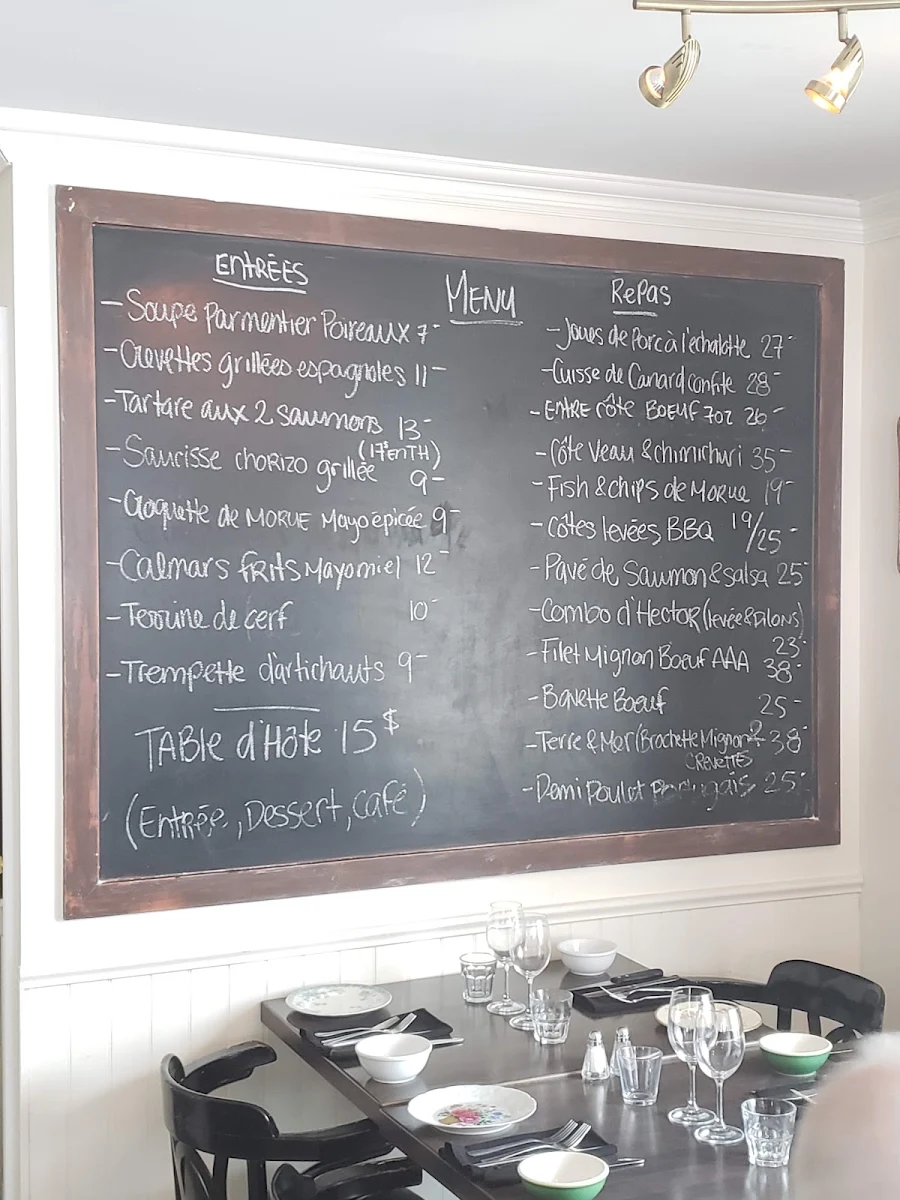 MENU
ENTRÉES
- Soupe Parmentier Poireaux 7-
- Crevettes grillées espagnoles 11-
- Tartare aux 2 saumons 13-
(17$ EN TH)
- Saucisse chorizo grillée 9-
- Croquette de MORUE Mayo épicée 9-
- Calmars frits Mayo miel 12-
- Terrine de cerf 10-
- Trempette d'artichauts 9-
TABLE d'Hôte 15$
(Entrée, Dessert, Café)
RePAS
- Joues de Porc à l'échalotte 27-
- Cuisse de Canard confite 28-
- ENTRE côte BOEUF 7oz 26-
- Côte Veau & chimichuri 35-
- Fish & chips de Morue 19-
- Côtes levées BBQ 19/25-
- Pavé de Saumon & salsa 25-
- Combo d'Hector (levée & Pilons)
23-
- Filet Mignon Boeuf AAA 38-
- Bavette Boeuf 25-
- Terre & Mer (Brochette Mignon & 38-
CREVETTES
- Demi Poulet Portugais 25-